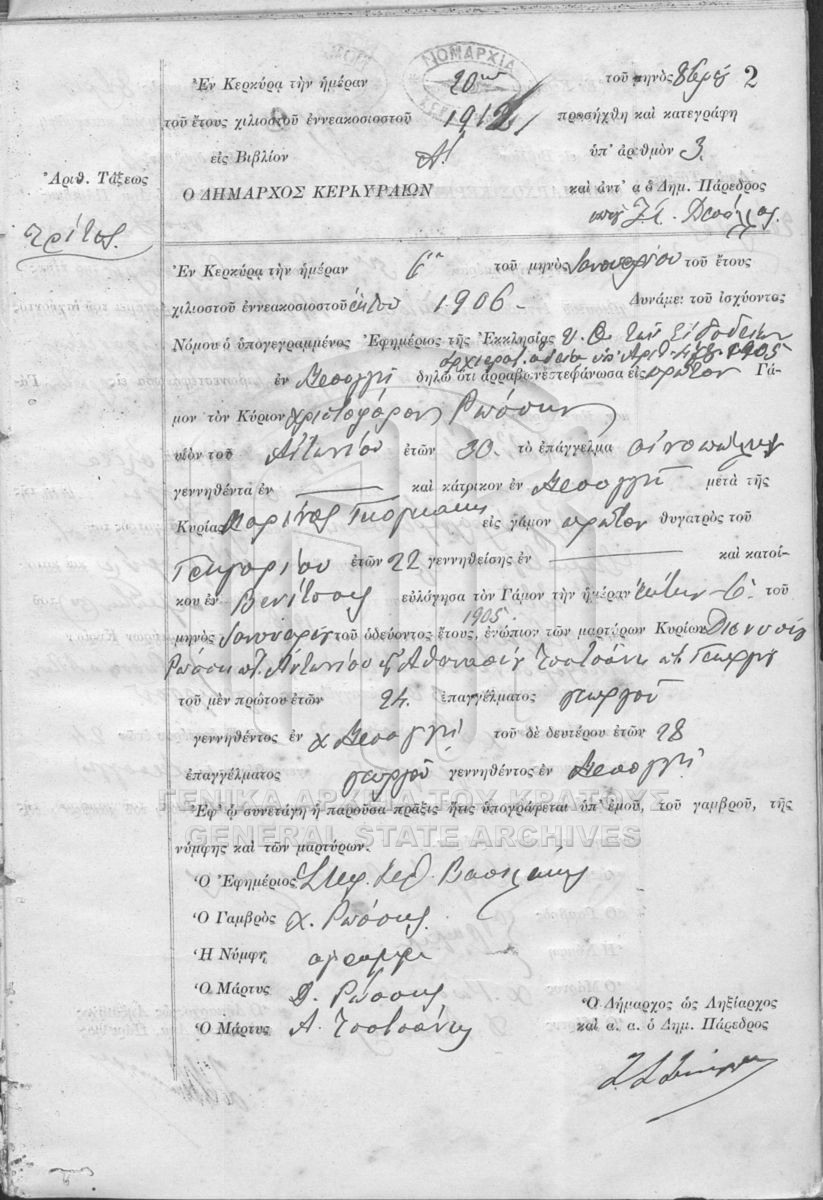 ΝΟΜΑΡΧΙΑ
Ἐν Κερκύρᾳ τὴν ἡμέραν 20ην τοῦ μηνὸς 8βρίου 2
τοῦ ἔτους χιλιοστοῦ ἐννεακοσιοστοῦ 1912 προσήχθη καὶ κατεγράφη
εἰς Βιβλίον Α' ὑπ' ἀριθμὸν 3.
Ἀριθ. Τάξεως
Ο ΔΗΜΑΡΧΟΣ ΚΕΡΚΥΡΑΙΩΝ καὶ ἀντ' α ὁ Δημ. Πάρεδρος
τρίτος.
Ἐν Κερκύρᾳ τὴν ἡμέραν 6η τοῦ μηνὸς Ἰανουαρίου τοῦ ἔτους
χιλιοστοῦ ἐννεακοσιοστοῦ ἕκτου 1906 Δυνάμει τοῦ ἰσχύοντος
Νόμου ὁ ὑπογεγραμμένος Ἐφημέριος τῆς Ἐκκλησίας Υ. Θ. τῶν Εἰσοδείων
ἀρχιερατ. ἀδεία ὑπ' Ἀριθ. 1905
ἐν δηλῶ ὅτι ἀρραβωνεστεφάνωσα εἰς πρῶτον Γά-
μον τὸν Κύριον Χριστοφόρον Ρώσση
υἱὸν τοῦ Ἀντωνίου ἐτῶν 30. τὸ ἐπάγγελμα οἰνοπώλην
γεννηθέντα ἐν — καὶ κάτοικον ἐν μετὰ τῆς
Κυρίας Μαρίνας εἰς γάμον πρῶτον θυγατρὸς τοῦ
Γρηγορίου ἐτῶν 22 γεννηθείσης ἐν — καὶ κατοί-
κου ἐν Βενίτσαις εὐλόγησα τὸν Γάμον τὴν ἡμέραν ἕκτην 6 τοῦ
1905
μηνὸς Ἰανουαρίου τοῦ ὁδεύοντος ἔτους, ἐνώπιον τῶν μαρτύρων Κυρίων Διονυσίου
Ρώσση Ἀντωνίου Ἀθανασίου Τσατσάνη Γεωργίου
τοῦ μὲν πρώτου ἐτῶν 24. ἐπαγγέλματος γεωργοῦ
γεννηθέντος ἐν τοῦ δὲ δευτέρου ἐτῶν 28
ἐπαγγέλματος γεωργοῦ γεννηθέντος ἐν
ΓΕΝΙΚΑ ΑΡΧΕΙΑ ΤΟΥ ΚΡΑΤΟΥΣ
Ἐφ' ᾧ συνετάγη ἡ παροῦσα πρᾶξις ἥτις ὑπογράφεται ὑπ' ἐμοῦ, τοῦ γαμβροῦ, τῆς
GENERAL STATE ARCHIVES
νύμφης καὶ τῶν μαρτύρων.
Ὁ Ἐφημέριος
Ὁ Γαμβρὸς Χ. Ρώσσης
Ἡ Νύμφη ἀγράμμ
Ὁ Μάρτυς Δ. Ρώσσης
Ὁ Μάρτυς Α. Τσατσάνης
Ὁ Δήμαρχος ὡς Ληξίαρχος
καὶ α. α. ὁ Δημ. Πάρεδρος